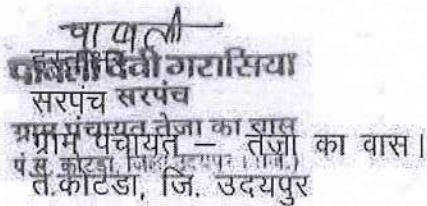 पावली
हस्ताक्षर
पावली देवी गरासिया
सरपंच सरपंच
ग्राम पंचायत तेजा का वास
ग्राम पंचायत – तेजा का वास।
पं.स. कोटडा, जिला उदयपुर (राज.)
ते.कोटडा, जि. उदयपुर